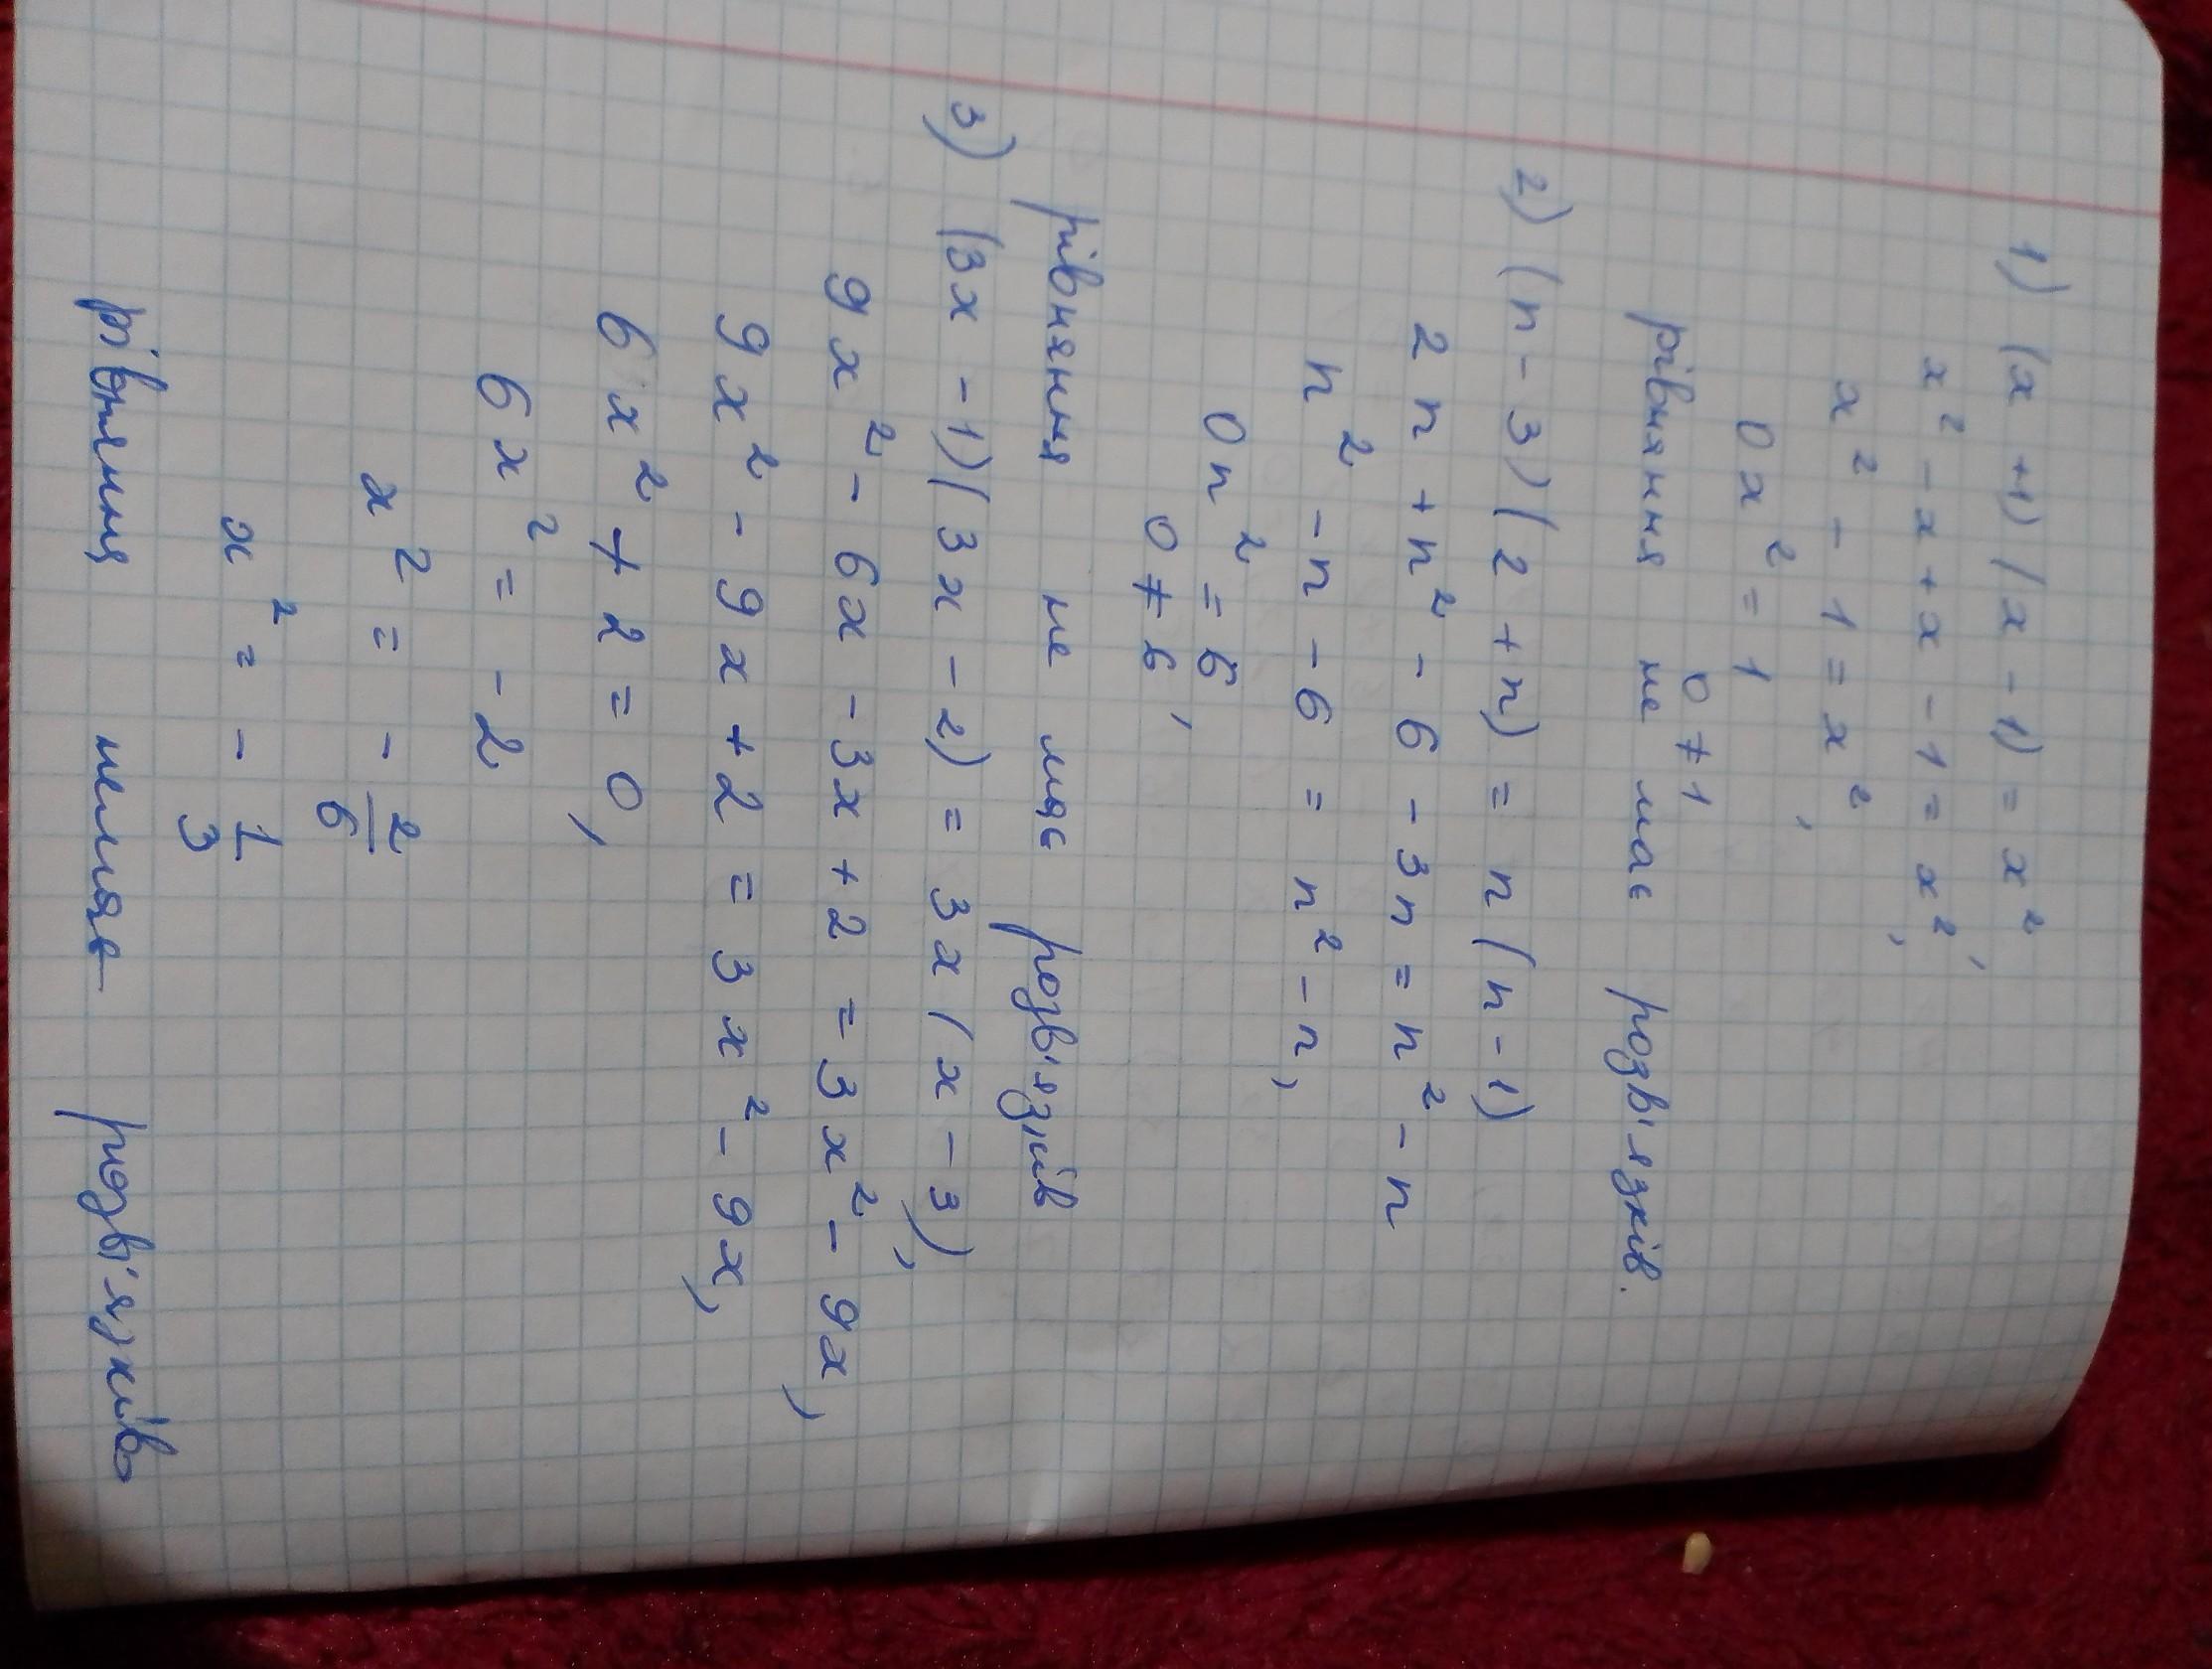 1) (x+1)(x-1) = x²,
x² - x + x - 1 = x²,
x² - 1 = x²,
0x² = 1
0 ≠ 1
рівняння не має розв'язків.
2) (n-3)(2+n) = n(n-1)
2n + n² - 6 - 3n = n² - n
n² - n - 6 = n² - n,
0n² = 6
0 ≠ 6,
рівняння не має розв'язків
3) (3x-1)(3x-2) = 3x(x-3),
9x² - 6x - 3x + 2 = 3x² - 9x,
9x² - 9x + 2 = 3x² - 9x,
6x² + 2 = 0,
6x² = -2
x² = - 2/6
x² = - 1/3
рівняння немає розв'язків